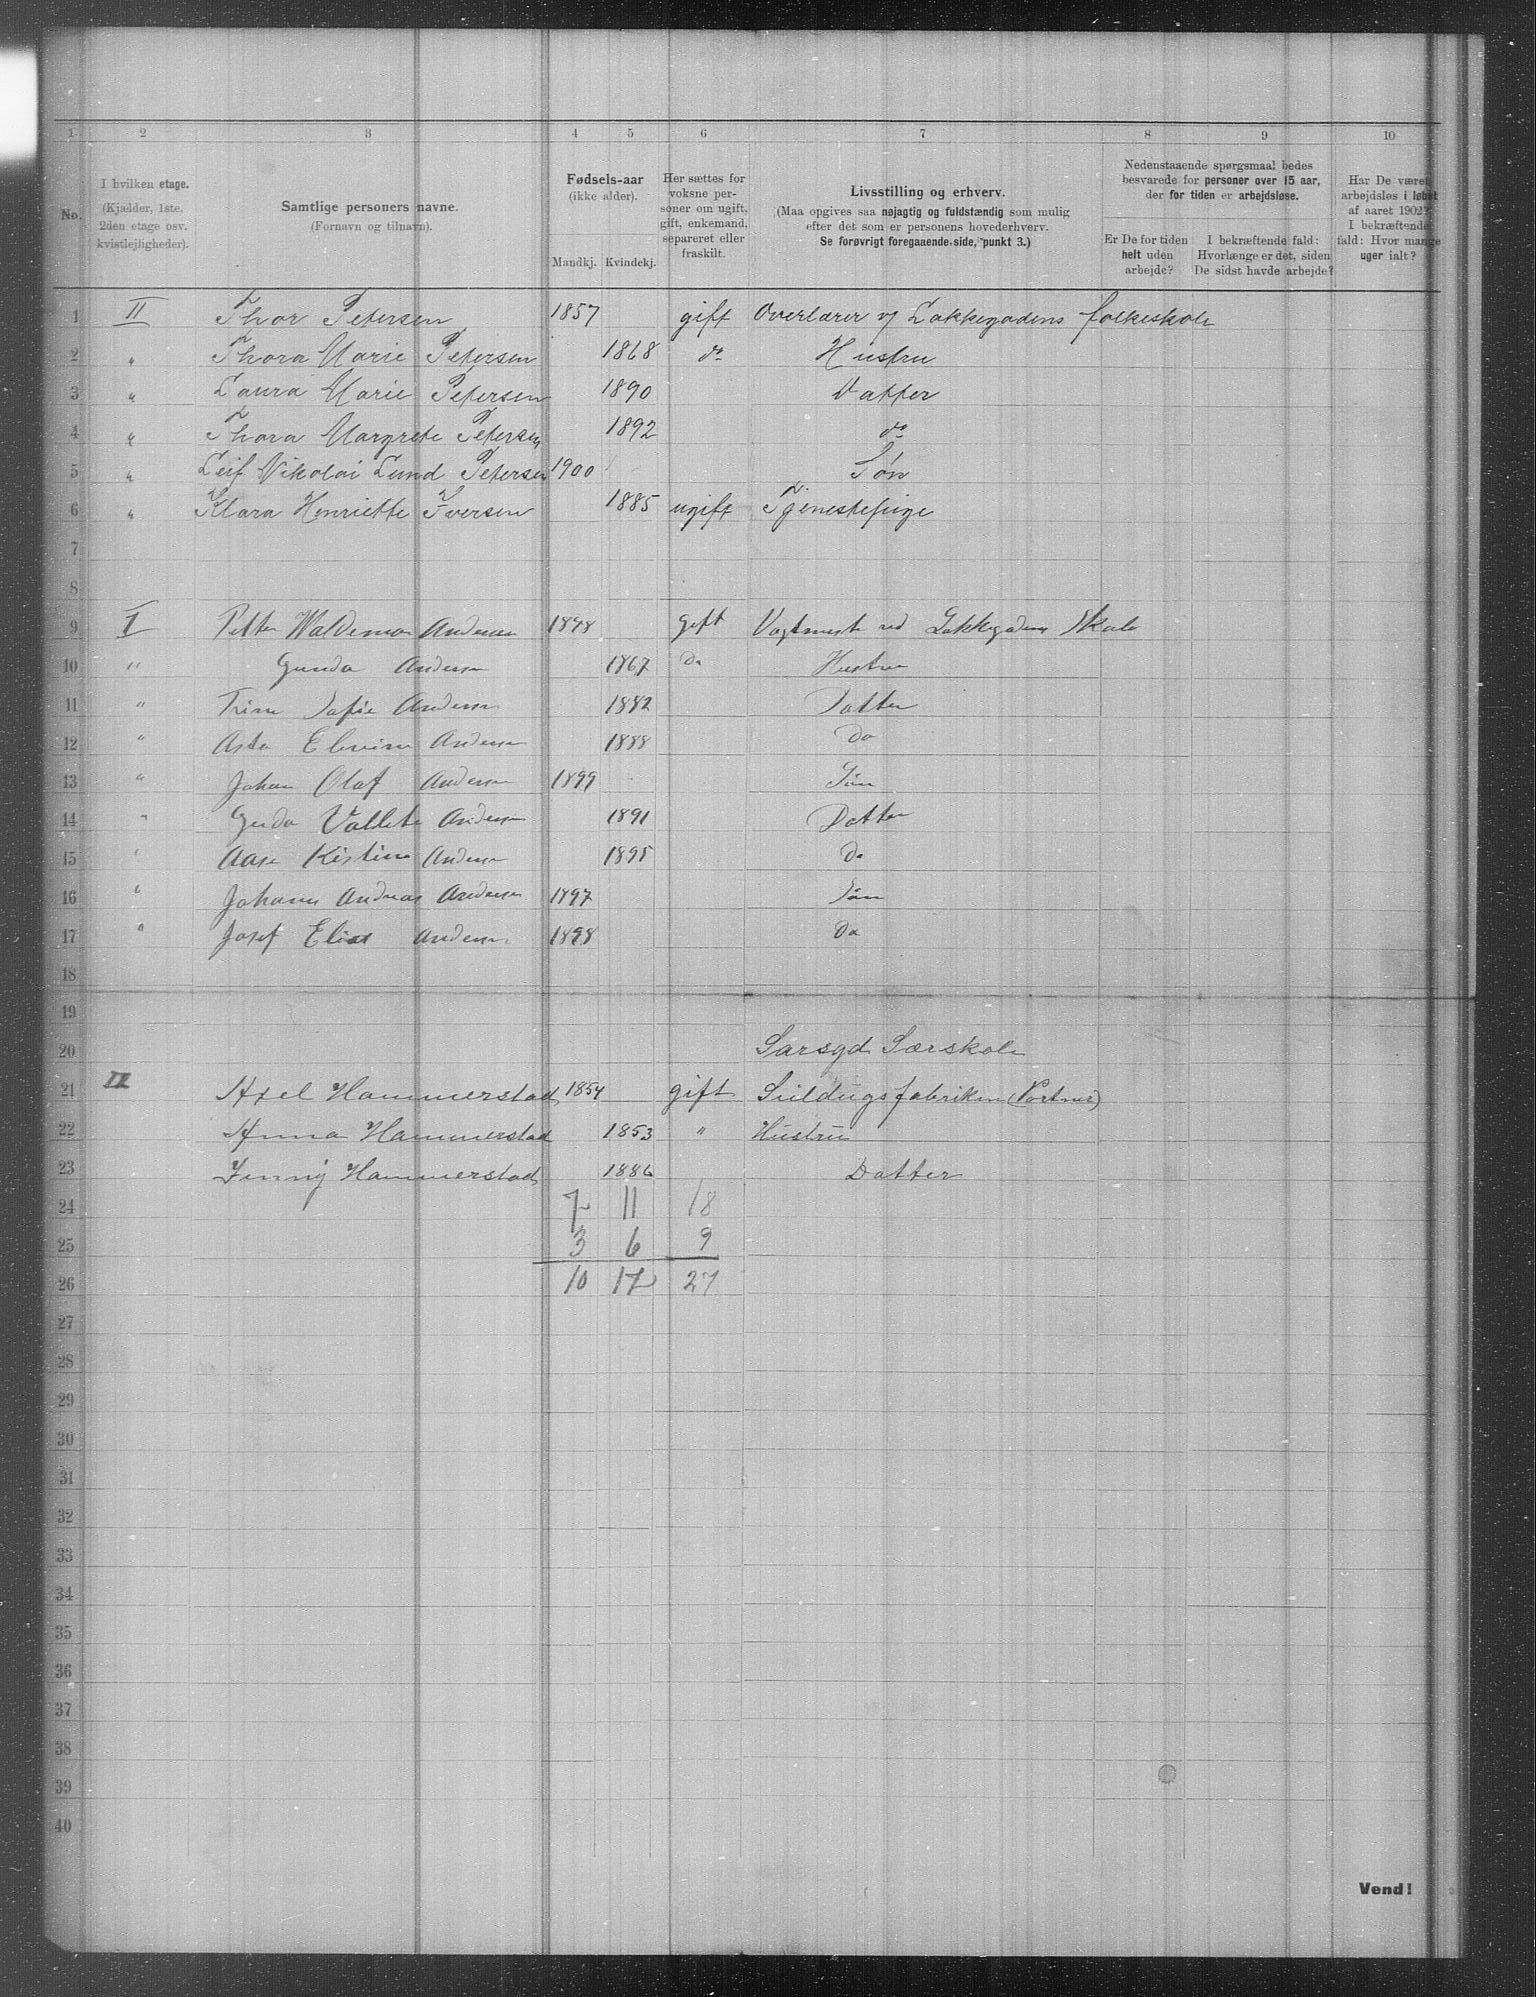 1 2 3 4 5 6 7 8 9 10
No.
I hvilken etage.
(Kjælder, 1ste,
2den etage osv.
kvistlejligheder).
Samtlige personers navne.
(Fornavn og tilnavn).
Fødsels-aar
(ikke alder).
Mandkj. Kvindekj.
Her sættes for
voksne per-
soner om ugift,
gift, enkemand,
separeret eller
fraskilt.
Livsstilling og erhverv.
(Maa opgives saa nøjagtig og fuldstændig som mulig
efter det som er personens hovederhverv.
Se forøvrigt foregaaende side, punkt 3.)
Nedenstaaende spørgsmaal bedes
besvarede for personer over 15 aar,
der for tiden er arbejdsløse.
Er De for tiden
helt uden
arbejde?
I bekræftende fald:
Hvorlænge er det, siden
De sidst havde arbejde?
Har De været
arbejdsløs i løbet
af aaret 1902?
I bekræftende
fald: Hvor mange
uger ialt?
1 II Thor Petersen 1857 gift Overlærer v/ Lakkegadens folkeskole
2 " Thora Marie Petersen 1868 do Hustru
3 " Laura Marie Petersen 1890 Datter
4 " Thora Margrete Petersen 1892 do
5 " Leif Nikolai Lund Petersen 1900 Søn
6 " Klara Henriette Iversen 1885 ugift Tjenestepige
7
8
9 I Petter Waldemar Andersen gift Vagtmester ved Lakkegadens Skole
10 " Gunda Andersen 1867 do Hustru
11 " Trine Sofie Andersen 1882 Datter
12 " Asta Andersen 1888 Do
13 " Johan Olaf Andersen Søn
14 " Andersen 1891 Datter
15 " Aase Kistine Andersen 1895 Do
16 " Johannes Andreas Andersen 1897 Søn
17 " Josef Elias Andersen 1898 Do
18
19
20 Særskole
21 II Axel Hammerstad 1854 gift (Portner)
22 Anna Hammerstad 1853 " Hustru
23 Jenny Hammerstad 1886 Datter
24 7 11 18
25 3 6 9
26 10 17 27
27
28
29
30
31
32
33
34
35
36
37
38
39
40
Vend!